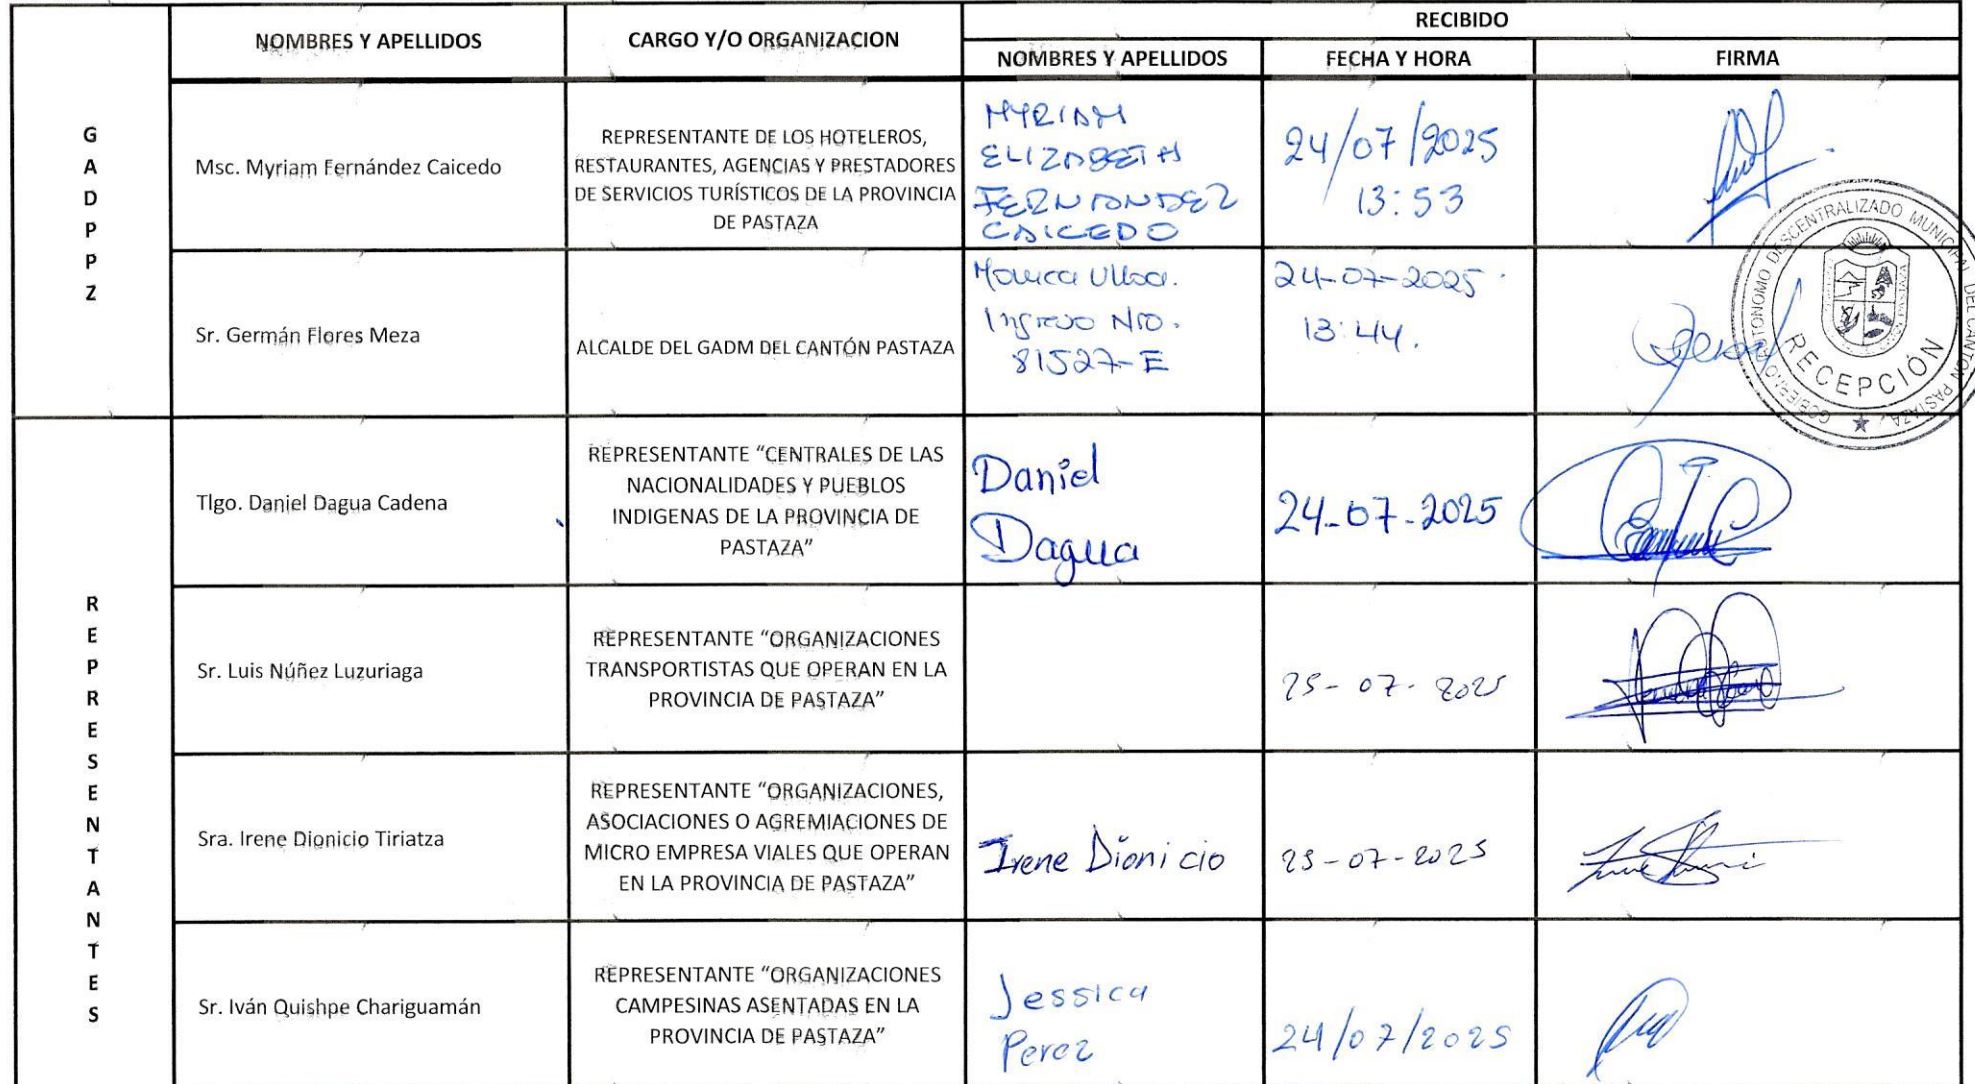 NOMBRES Y APELLIDOS
CARGO Y/O ORGANIZACION
RECIBIDO
NOMBRES Y APELLIDOS
FECHA Y HORA
FIRMA
GADPPZ
Msc. Myriam Fernández Caicedo
REPRESENTANTE DE LOS HOTELEROS,
RESTAURANTES, AGENCIAS Y PRESTADORES
DE SERVICIOS TURÍSTICOS DE LA PROVINCIA
DE PASTAZA
MYRIAM
ELIZABETH
FERNANDEZ
CAICEDO
24/07/2025
13:53
Sr. Germán Flores Meza
ALCALDE DEL GADM DEL CANTÓN PASTAZA
Monica Ulloa.
Ingreso Nro.
81527-E
24-07-2025.
13:44.
GOBIERNO AUTONOMO DESCENTRALIZADO MUNICIPAL DEL CANTON PASTAZA
RECEPCIÓN
REPRESENTANTES
Tlgo. Daniel Dagua Cadena
REPRESENTANTE “CENTRALES DE LAS
NACIONALIDADES Y PUEBLOS
INDIGENAS DE LA PROVINCIA DE
PASTAZA”
Daniel
Dagua
24-07-2025
Sr. Luis Núñez Luzuriaga
REPRESENTANTE “ORGANIZACIONES
TRANSPORTISTAS QUE OPERAN EN LA
PROVINCIA DE PASTAZA”
25-07-2025
Sra. Irene Dionicio Tiriatza
REPRESENTANTE “ORGANIZACIONES,
ASOCIACIONES O AGREMIACIONES DE
MICRO EMPRESA VIALES QUE OPERAN
EN LA PROVINCIA DE PASTAZA”
Irene Dionicio
25-07-2025
Sr. Iván Quishpe Chariguamán
REPRESENTANTE “ORGANIZACIONES
CAMPESINAS ASENTADAS EN LA
PROVINCIA DE PASTAZA”
Jessica
Perez
24/07/2025